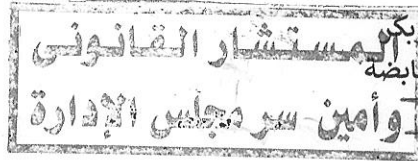 المستشار القانونى
وأمين سر مجلس الإدارة